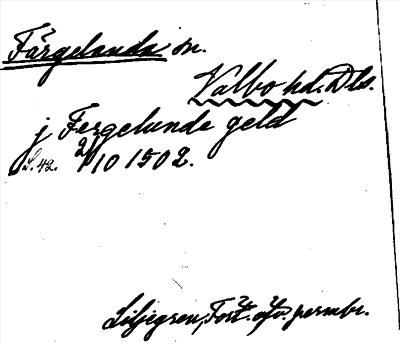 Färgelanda sn.
Valbo hd. Dls.
j Fergelunde geld
S. 42. 2/10 1502.
Liljegren, Fört. öfv. permbr.